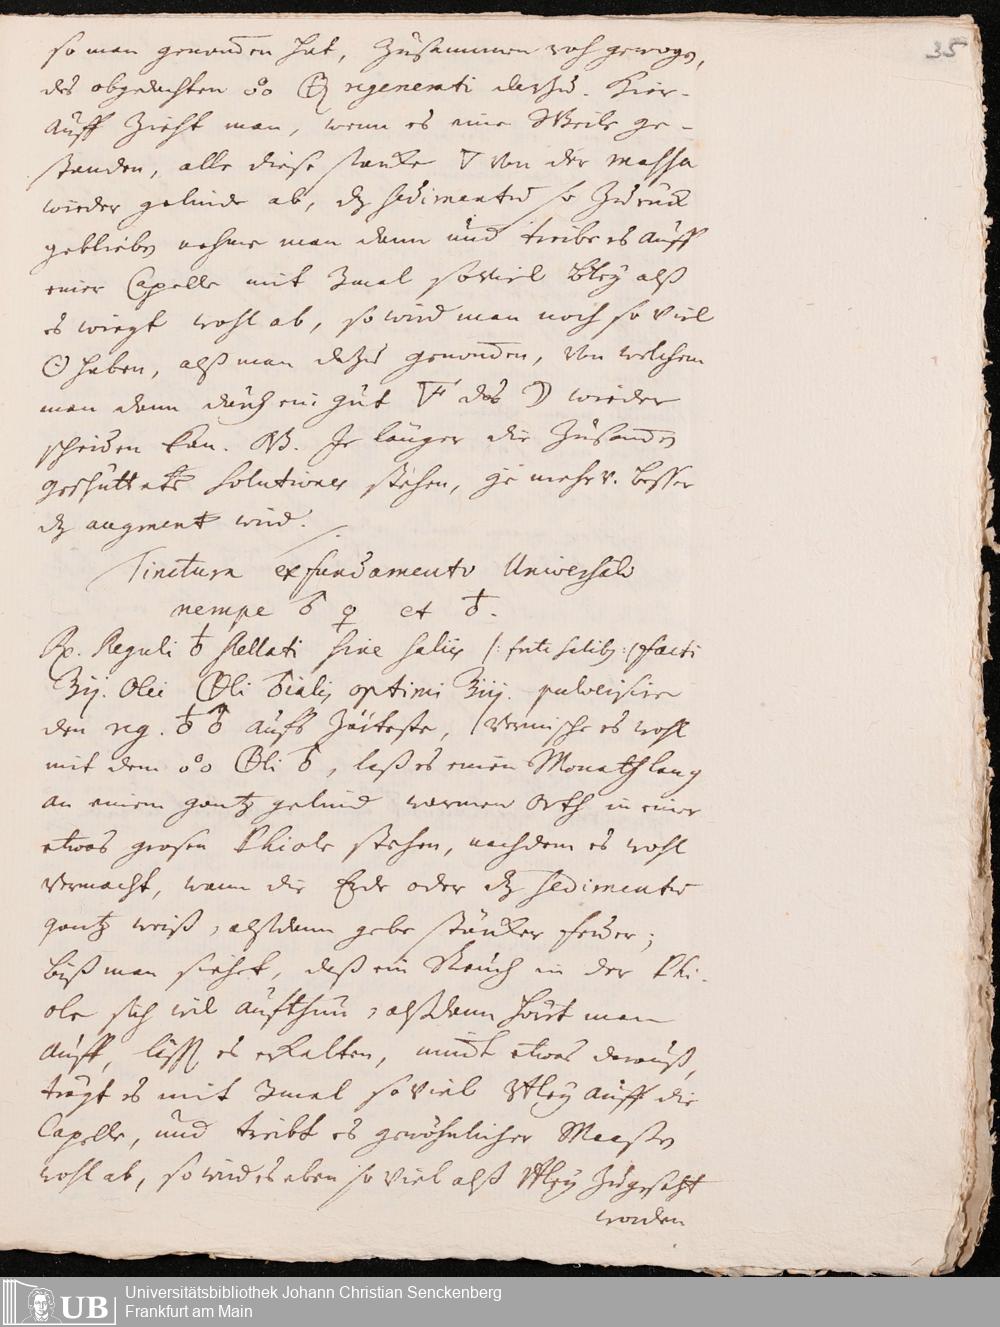 35
so man genom̄en hat, zusammen wohl gewogen,
des obgedachten regenerati darzu. Hier-
auff zieht man, wenn es eine Weile ge-
standen, alle diese starke ▽ von der massa
wieder gelinde ab, dz sedimentū so zurück
geblieben nehme man dann und treibe es auff
einer Capelle mit 3mal soviel Bley alß
es wiegt wohl ab, so wird man noch so viel
☉ haben, alß man dazu genom̄en, von welchem
man dann durch ein gut ▽F das ☽ wieder
scheiden kan. NB. Je länger die zusam̄en
geschüttete solutiones stehen, je mehr v. besser
dz augment wird.
Tinctura ex fundamento Universali
nempe ♀ et ♁.
Rp. Reguli ♁ stellati sine salis /: facti
Olei optimi pulverisire
den reg. ♁ auffs zärteste, vermische es wohl
mit dem , laß es einen Monath lang
an einem gantz gelind warmen Orth in einer
etwas grosen Phiole stehen, nachdem es wohl
vermacht, wann die Erde oder dz sedimentū
gantz weiß, alßdann gebe stärker feuer;
biß man siehet, daß ein Rauch in der Phi-
ole sich wil aufthun, alßdann höret man
auff, läßt es erkalten, nim̄t etwas darauß,
trägt es mit 3mal so viel Bley auff die
Capelle, und treibt es gewöhnlicher Maaßen
wohl ab, so wird es eben so viel alß Bley zugesetzt
worden
UB
Universitätsbibliothek Johann Christian Senckenberg
Frankfurt am Main